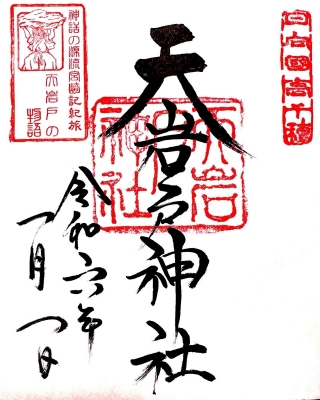 日向國高千穂
天岩戸神社
天岩戸神社
令和六年
一月一日
神話の源流宮崎記紀旅
天岩戸の
物語